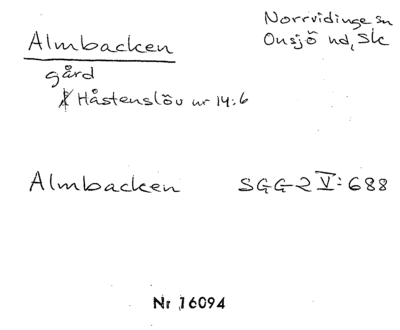 Norrvidinge sn
Onsjö hd, Sk
Almbacken
gård
Håstenslöv nr 14:6
Almbacken SGG 2 V: 688
Nr 16094